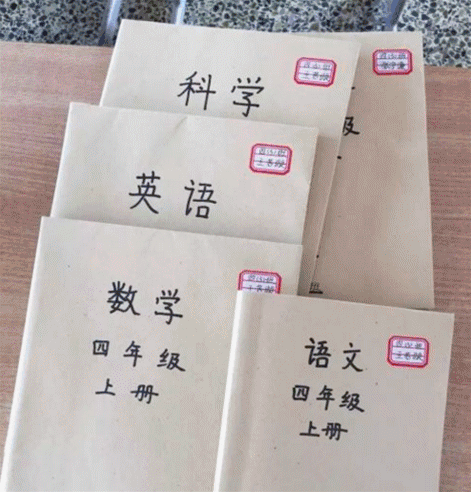 科学
级
英语
数学
四年级
上册
语文
四年级
上册